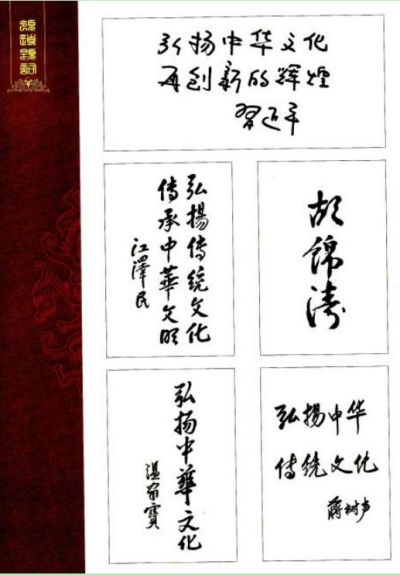 弘扬中华文化
再创新的辉煌
習近平
弘揚傳統文化
傳承中華文明
江澤民
胡錦濤
弘扬中華文化
温家寶
弘揚中华
傳統文化
蒋树声